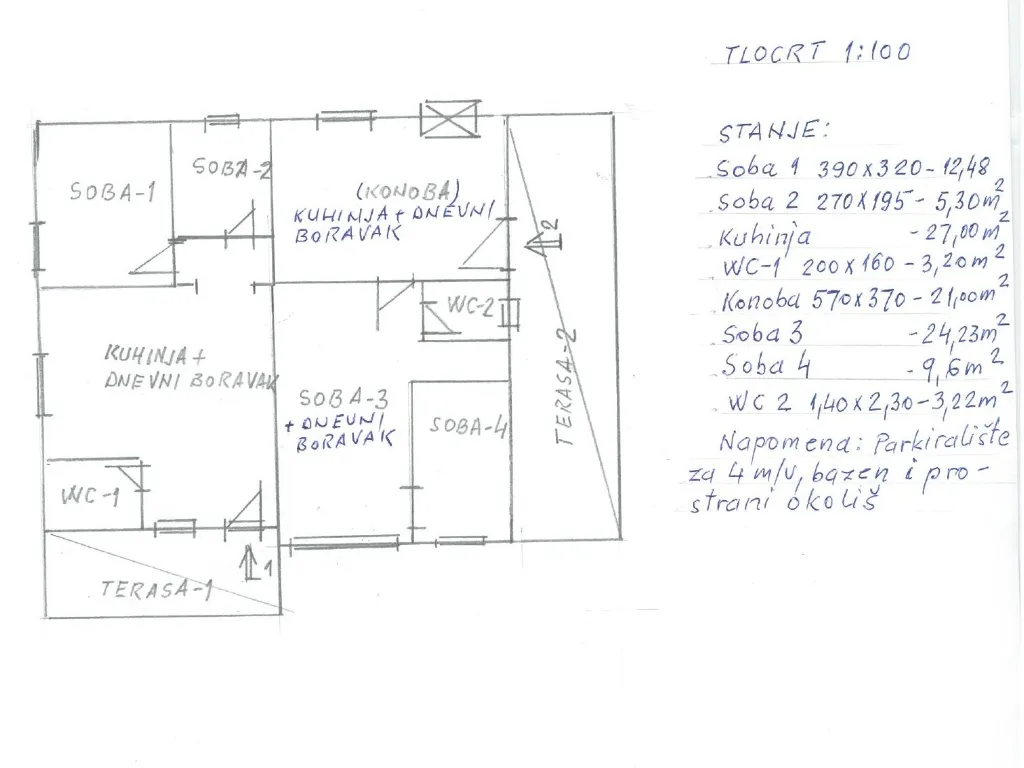 TLOCRT 1:100
STANJE:
Soba 1 390x320-12,48
Soba 2 270x195-5,30m²
Kuhinja -27,00m²
WC-1 200x160-3,20m²
Konoba 570x370-21,00m²
Soba 3 -24,23m²
Soba 4 -9,6m²
WC 2 1,40x2,30-3,22m²
Napomena: Parkiralište
za 4 m/v, bazen i pro-
strani okoliš
SOBA-1
SOBA-2
(KONOBA)
KUHINJA+DNEVNI
BORAVAK
2
WC-2
KUHINJA+
DNEVNI BORAVAK
SOBA-3
+DNEVNI
BORAVAK
SOBA-4
TERASA-2
WC-1
1
TERASA-1